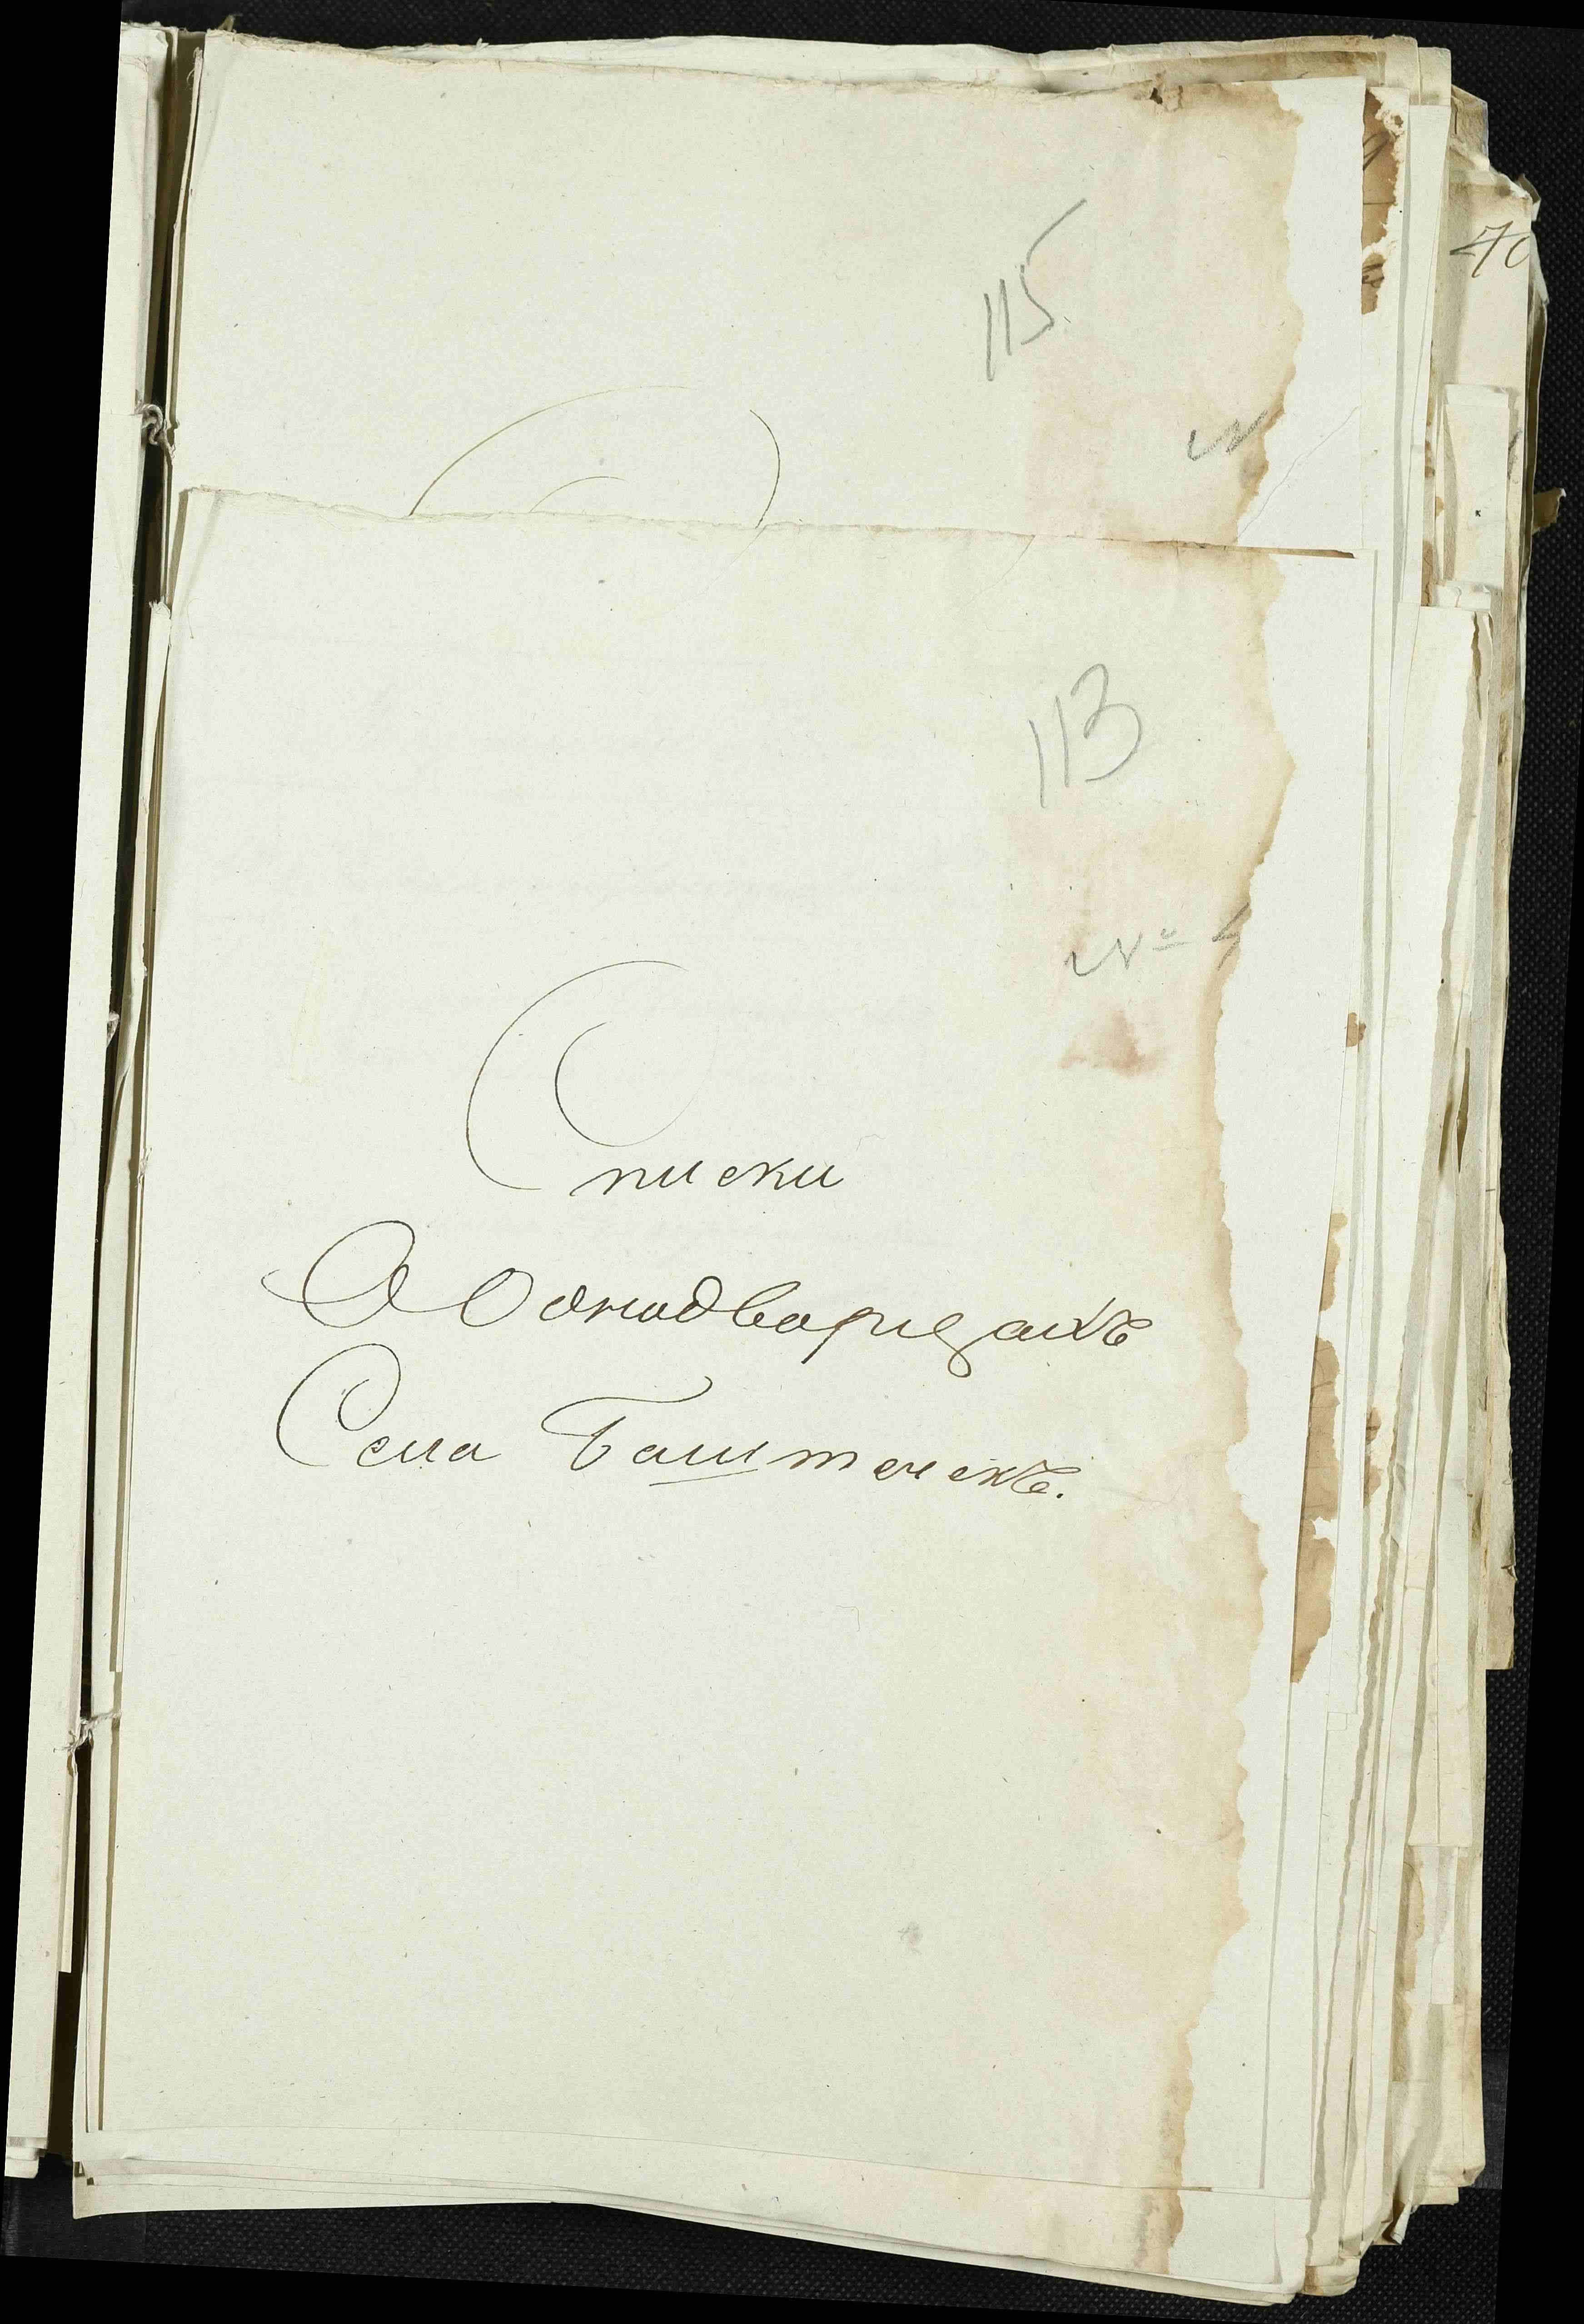 115
40
113
№ 4
Списки
О Однодворцахъ
Села Баштечекъ.